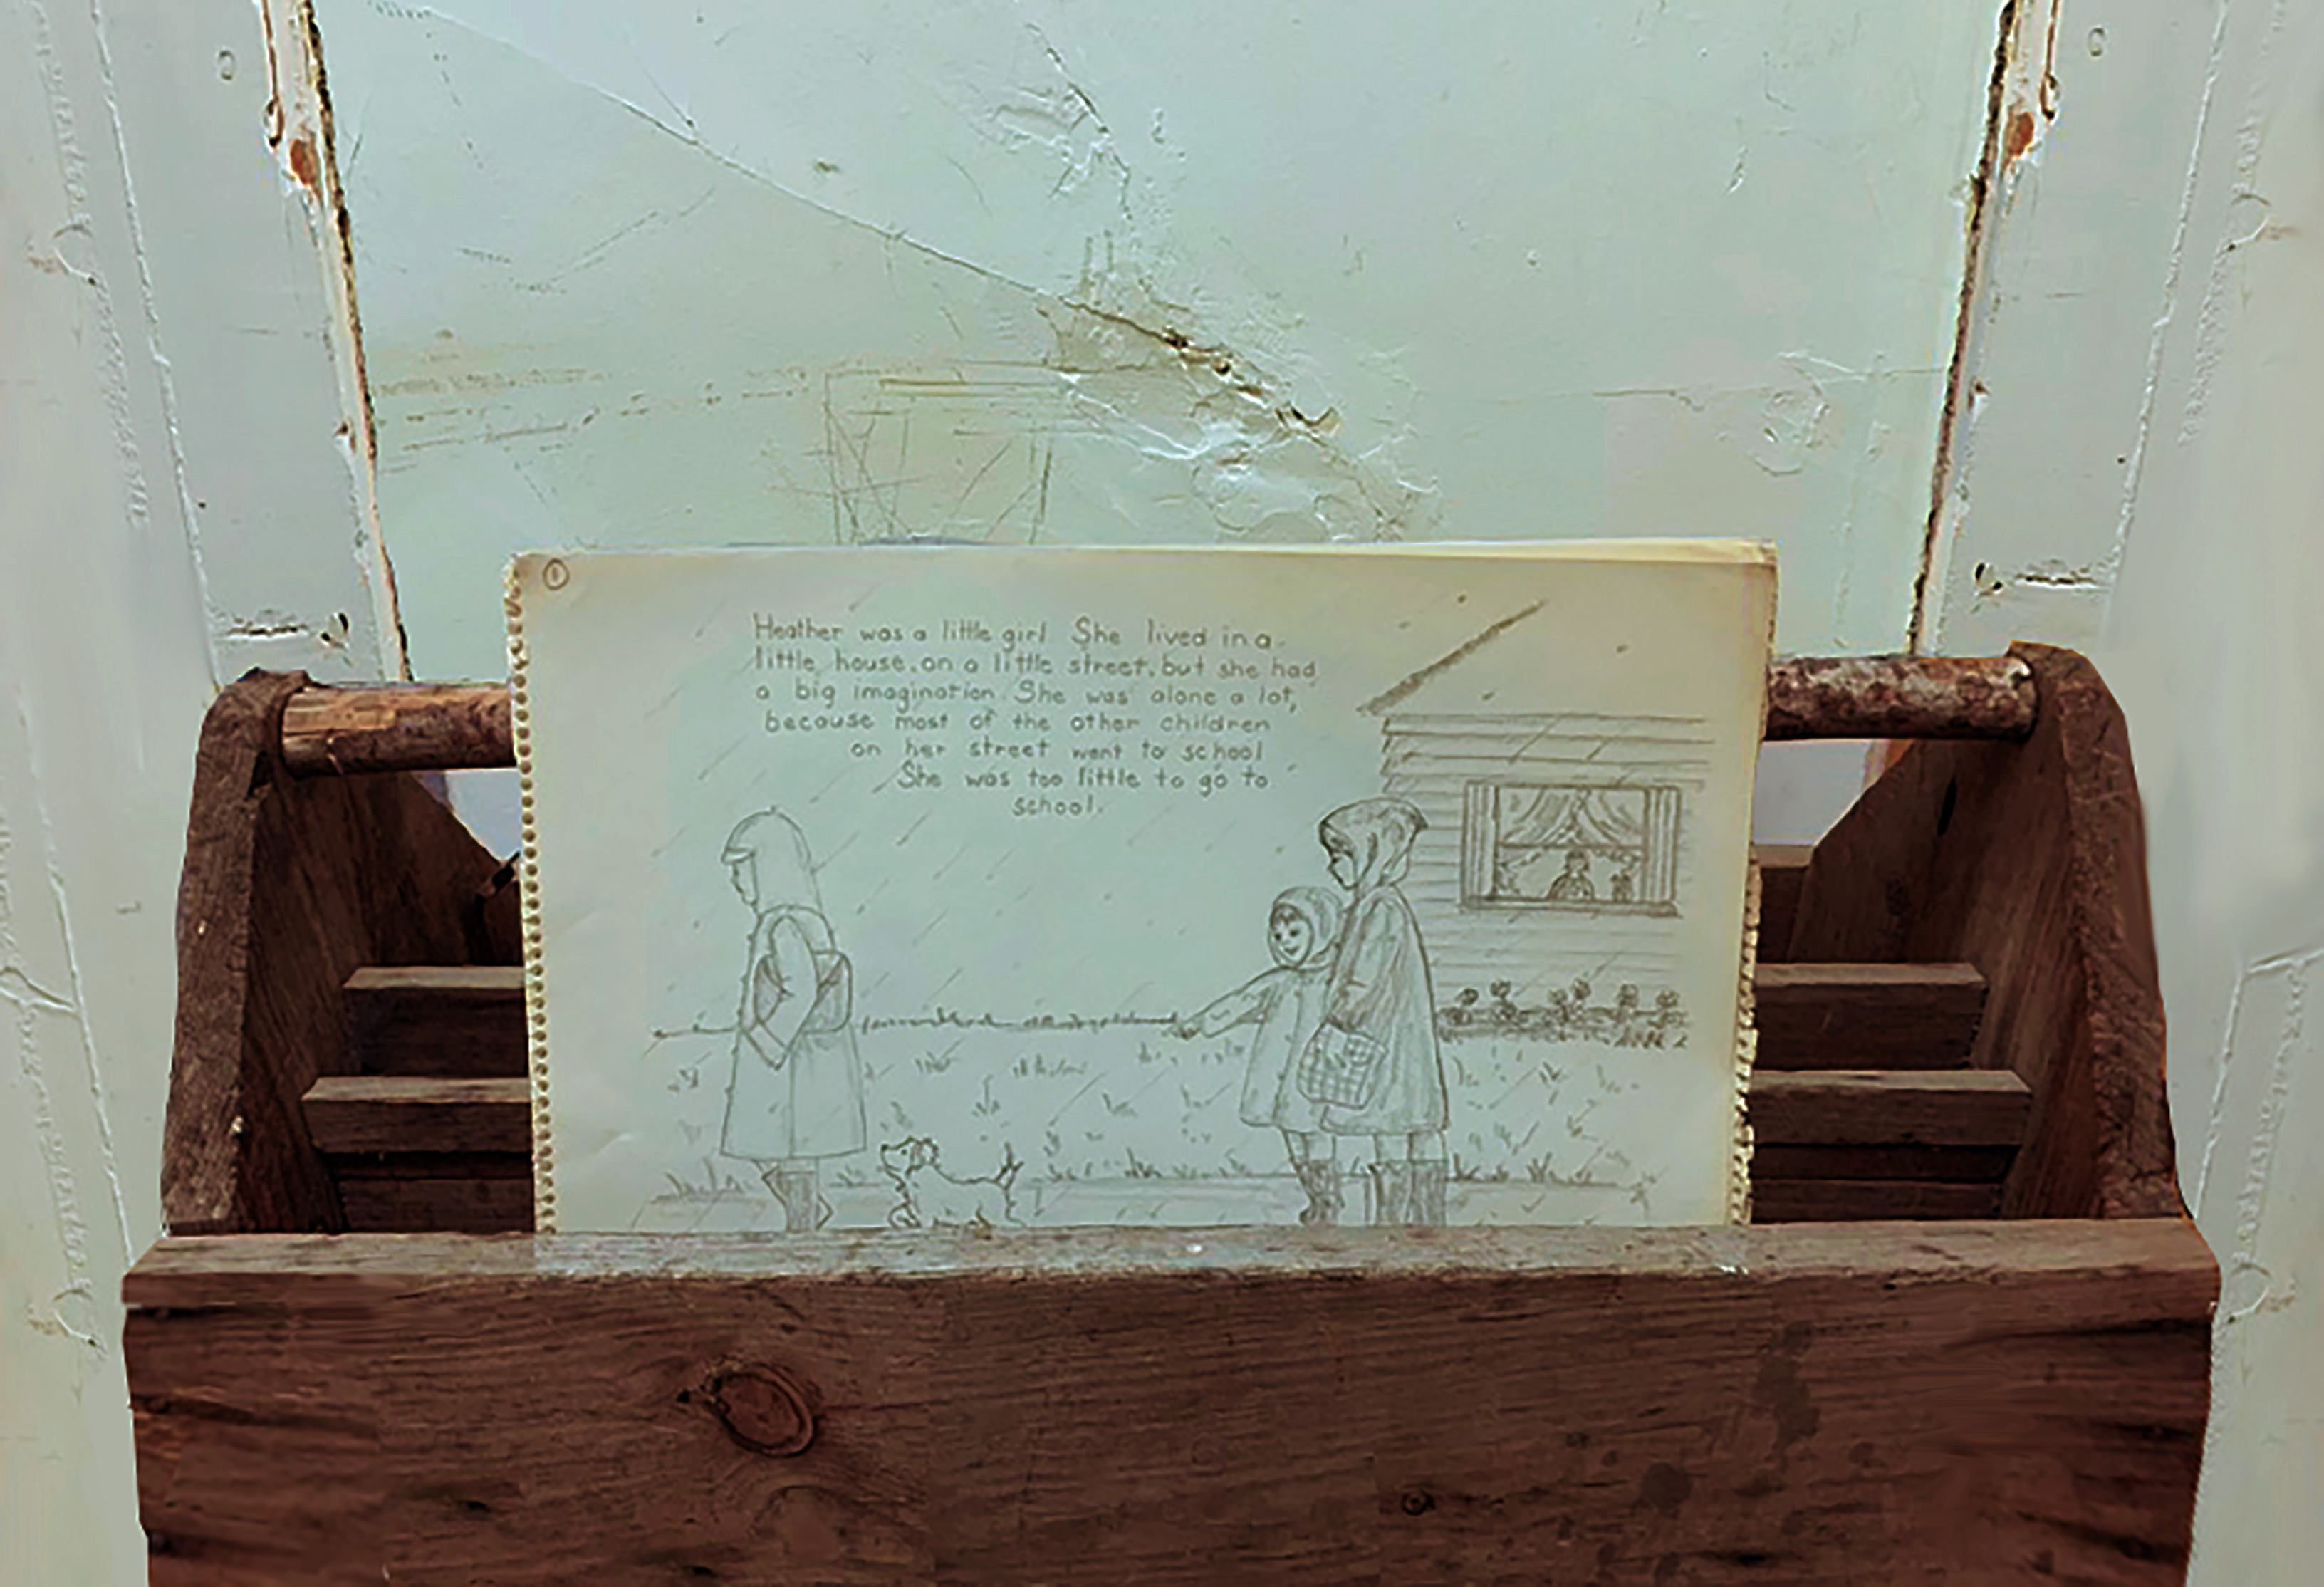 1
Heather was a little girl She lived in a
little house, on a little street, but she had
a big imagination. She was alone a lot,
because most of the other children
on her street went to school
She was too little to go to
school.